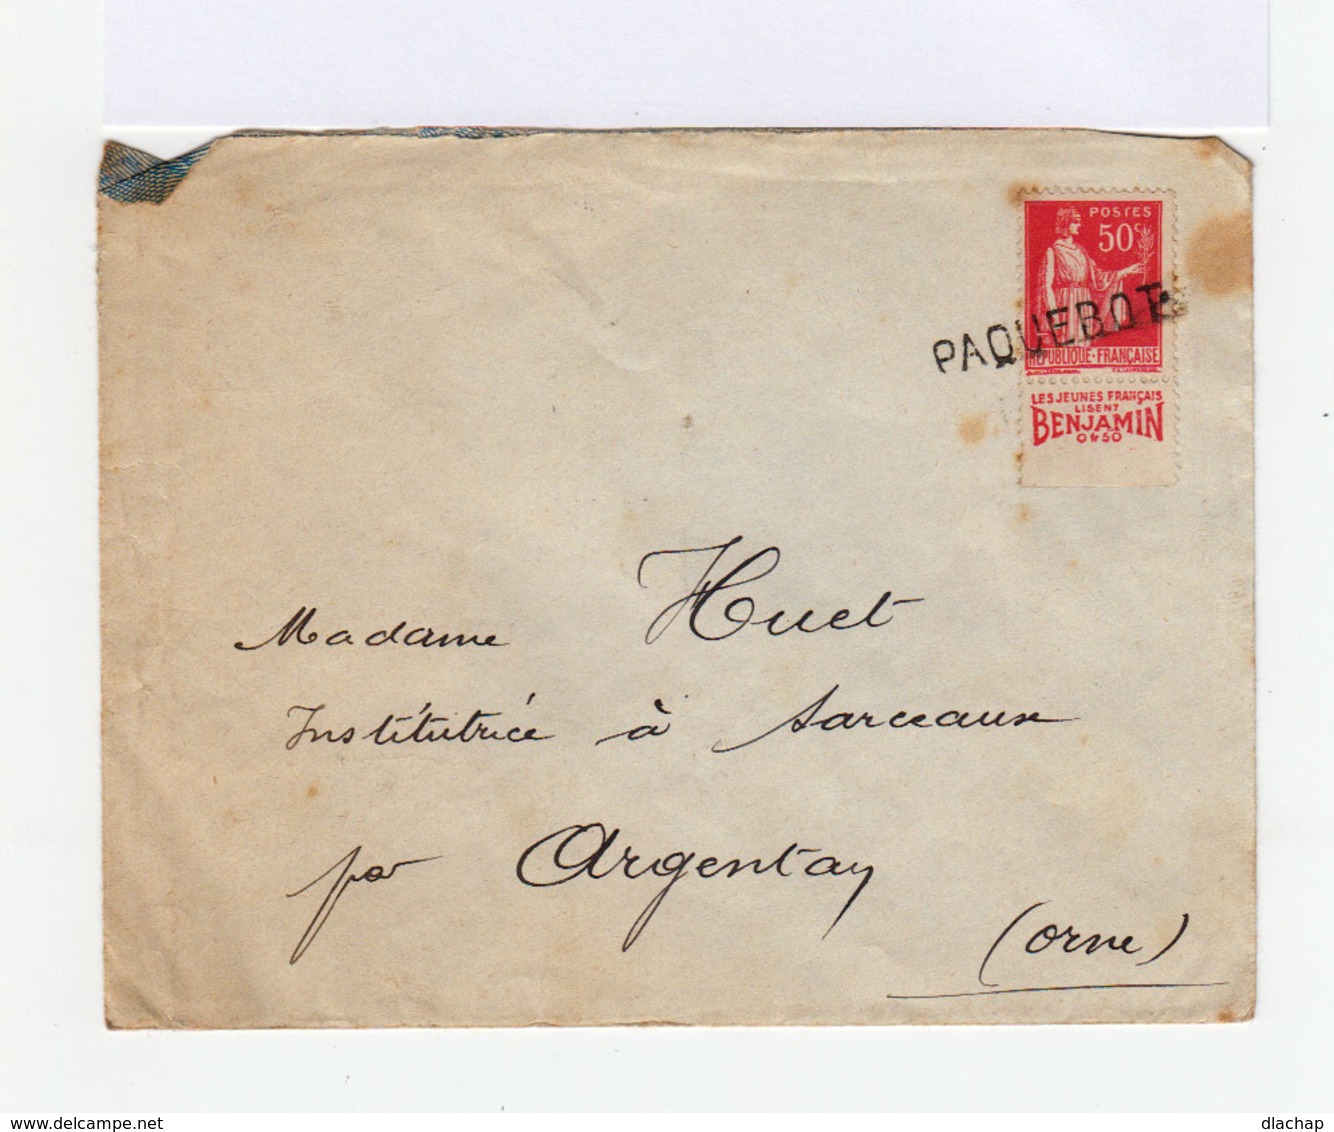 POSTES
50c
PAQUEBOT
RÉPUBLIQUE·FRANÇAISE
LES JEUNES FRANÇAIS
LISENT
BENJAMIN
0 fr 50
Madame Huet
Institutrice à Sarceaux
par Argentan
(orne)
www.delcampe.net
dlachap